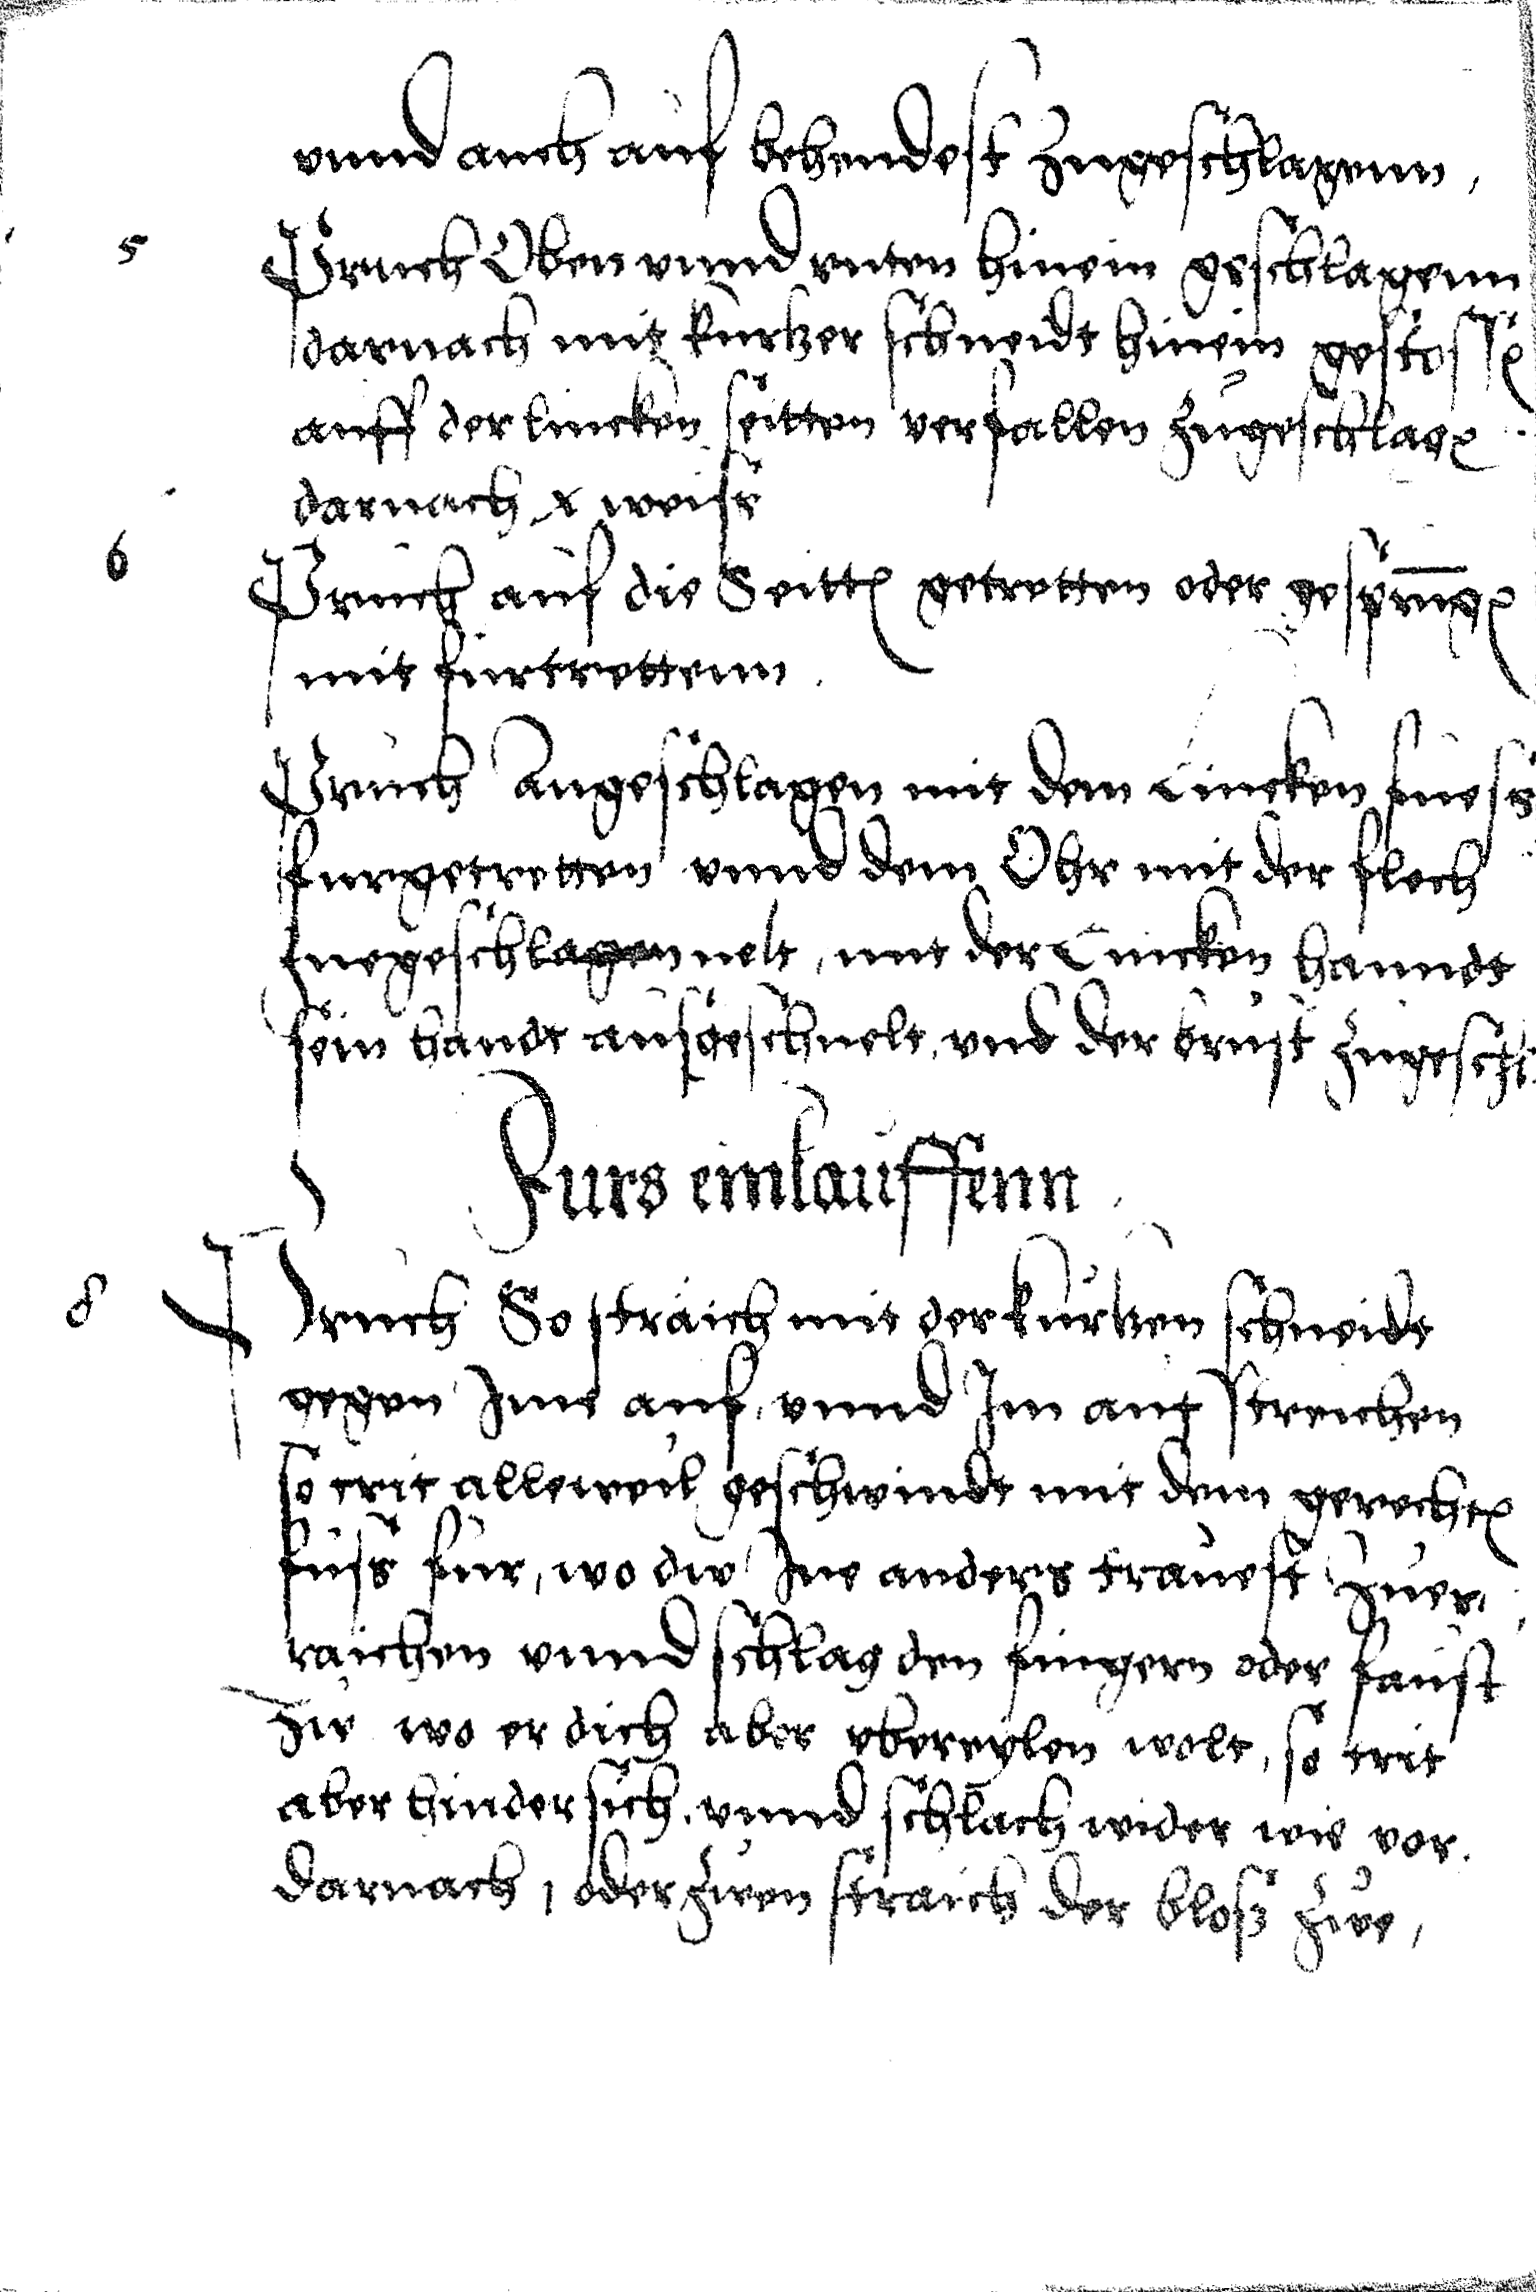 vnnd auch auf behendest zugeschlagenn,
5 Bruch Oben vnnd vnten hinein geschlagenn
darnach mit kurtzer schneidt hinein gestossen
auff der lincken seitten verfallen zugeschlagen
darnach x weiss
6 Bruch auf die Seitten getretten oder gesprungen
mit fürtrettenn.
Bruch Angeschlagen mit dem Lincken fuess
furgetretten vnnd dem Ohr mit der flech
zuegeschlagen nelt, mit der Lincken hanndt
sein handt ausgeschnelt, vnd der brust zugeschl
Furs einlauffenn
8 Bruch So straich mit der kurtzen schneidt
gegen Ime auf, vnnd Im auf streichen
so trit alleweil geschwindt mit dem gerechten
fuss für, wo du Ine anders trauest zuer,
raichen vnnd schlag den fingern oder faust
zu wo er dich aber vbereylen wolt, so trit
aber hindersich, vnnd schlach wider wie vor.
darnach, oder zwen straich der bloß zue,